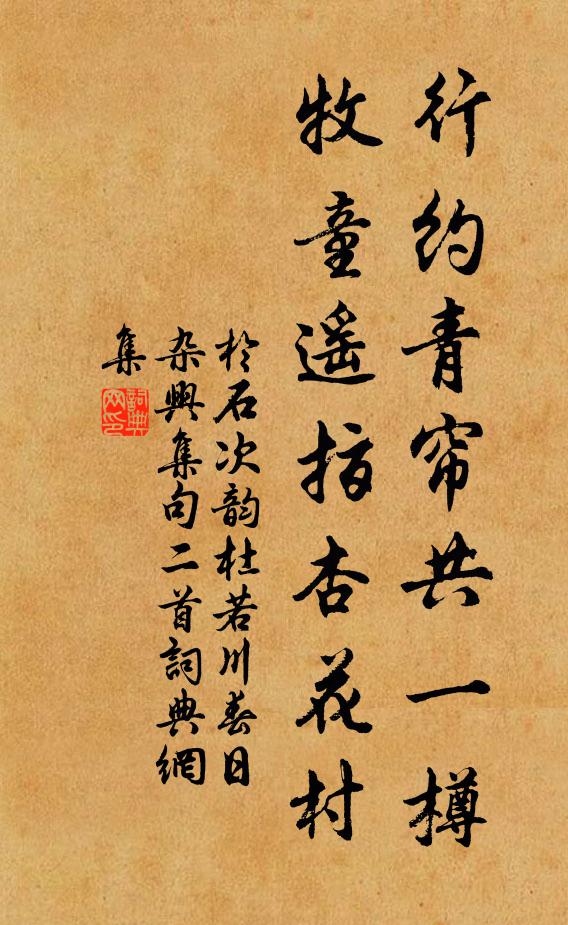 行约青帘共一樽
牧童遥指杏花村
於石次韵杜若川春日
杂兴集句二首詞典網
集
詞典
网印